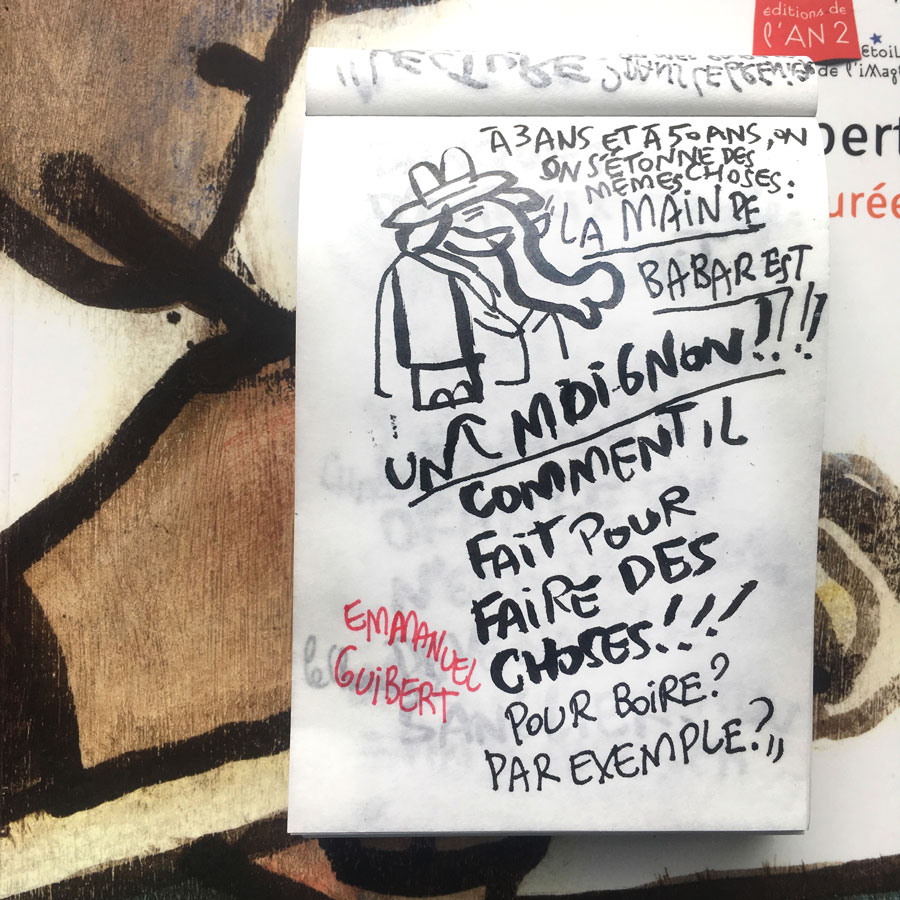 editions de
l'AN 2
Etoil
de l'iMag
bert
urée
"LECTURE
À 3 ANS ET À 50 ANS, ON
ON S'ÉTONNE DES
MÊMES CHOSES :
"LA MAIN DE
BABAR EST
UN MOIGNON!!!!
COMMENT IL
FAIT POUR
FAIRE DES
CHOSES!!!
POUR BOIRE?
PAR EXEMPLE?"
EMMANUEL
GUIBERT